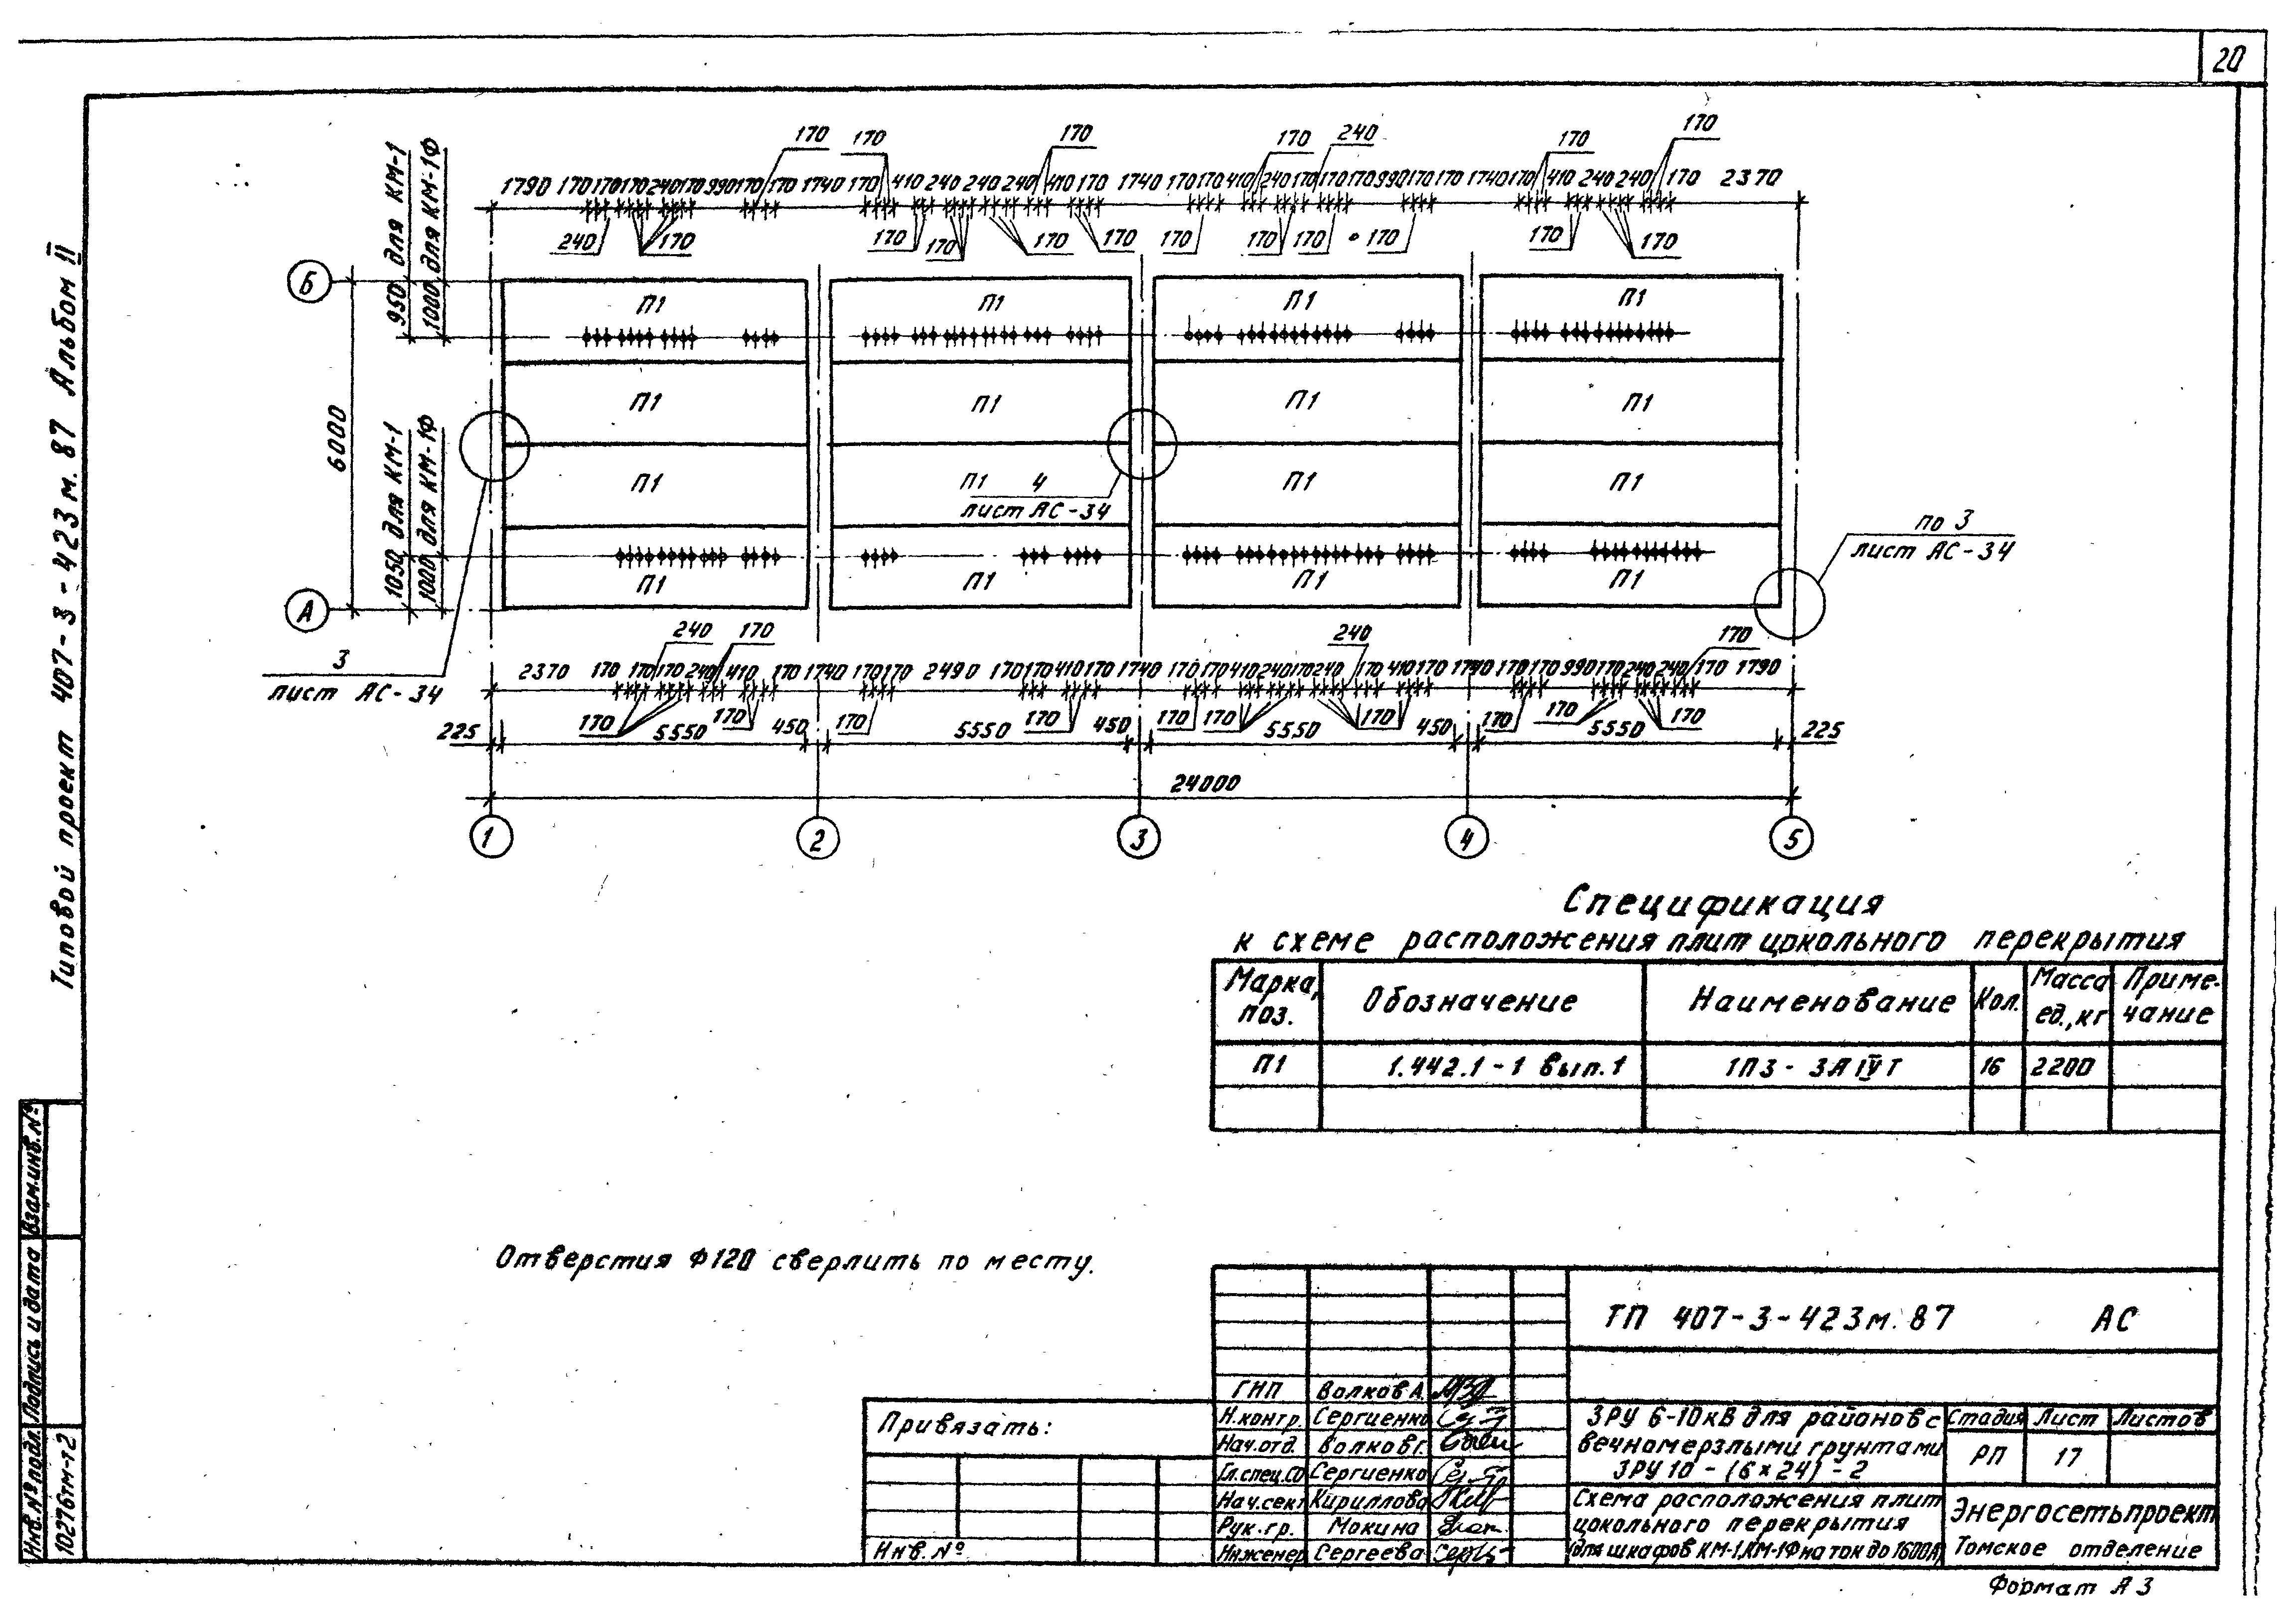 20
Типовой проект 407-3-423м.87 Альбом II
170 170 170 170 240 170 170
1790 170 170 170 240 170 990 170 170 1740 170 410 240 240 240 410 170 1740 170 170 410 240 170 170 170 990 170 170 1740 170 410 240 240 170 2370
240 170 170 170 170 170 170 170 170 170 170 170
950 для КМ-1
1000 для КМ-1Ф
Б
П1 П1 П1 П1
6000
П1 П1 П1 П1
1050 для КМ-1
1000 для КМ-1Ф
П1 П1 П1 П1
4
лист АС-34
по 3
лист АС-34
П1 П1 П1 П1
А
3
лист АС-34
240 170 240 170
2370 170 170 170 240 410 170 1740 170 170 2490 170 170 410 170 1740 170 170 410 240 170 240 170 410 170 1740 170 170 990 170 240 240 170 1790
170 170 170 170 170 170 170 170 170 170
225 5550 450 5550 450 5550 450 5550 225
24000
1 2 3 4 5
Спецификация
к схеме расположения плит цокольного перекрытия
Марка, поз. Обозначение Наименование Кол. Масса ед., кг Приме-чание
П1 1.442.1-1 вып.1 1П3-3АIVТ 16 2200
Отверстия Ф120 сверлить по месту.
ТП 407-3-423м.87 АС
ГНП Волков А.
Н.контр. Сергиенко
Нач.отд. Волков Г.
Гл.спец.СО Сергиенко
Нач.сект Кириллова
Рук.гр. Мокина
Инженер Сергеева
Привязать:
Инв.№
ЗРУ 6-10кВ для районов с
вечномерзлыми грунтами
ЗРУ 10-(6×24)-2
Стадия Лист Листов
РП 17
Схема расположения плит
цокольного перекрытия
(для шкафов КМ-1, КМ-1Ф на ток до 1600А)
Энергосетьпроект
Томское отделение
Формат А3
Инв.№подл. Подпись и дата Взам.инв.№
10276тм-т2